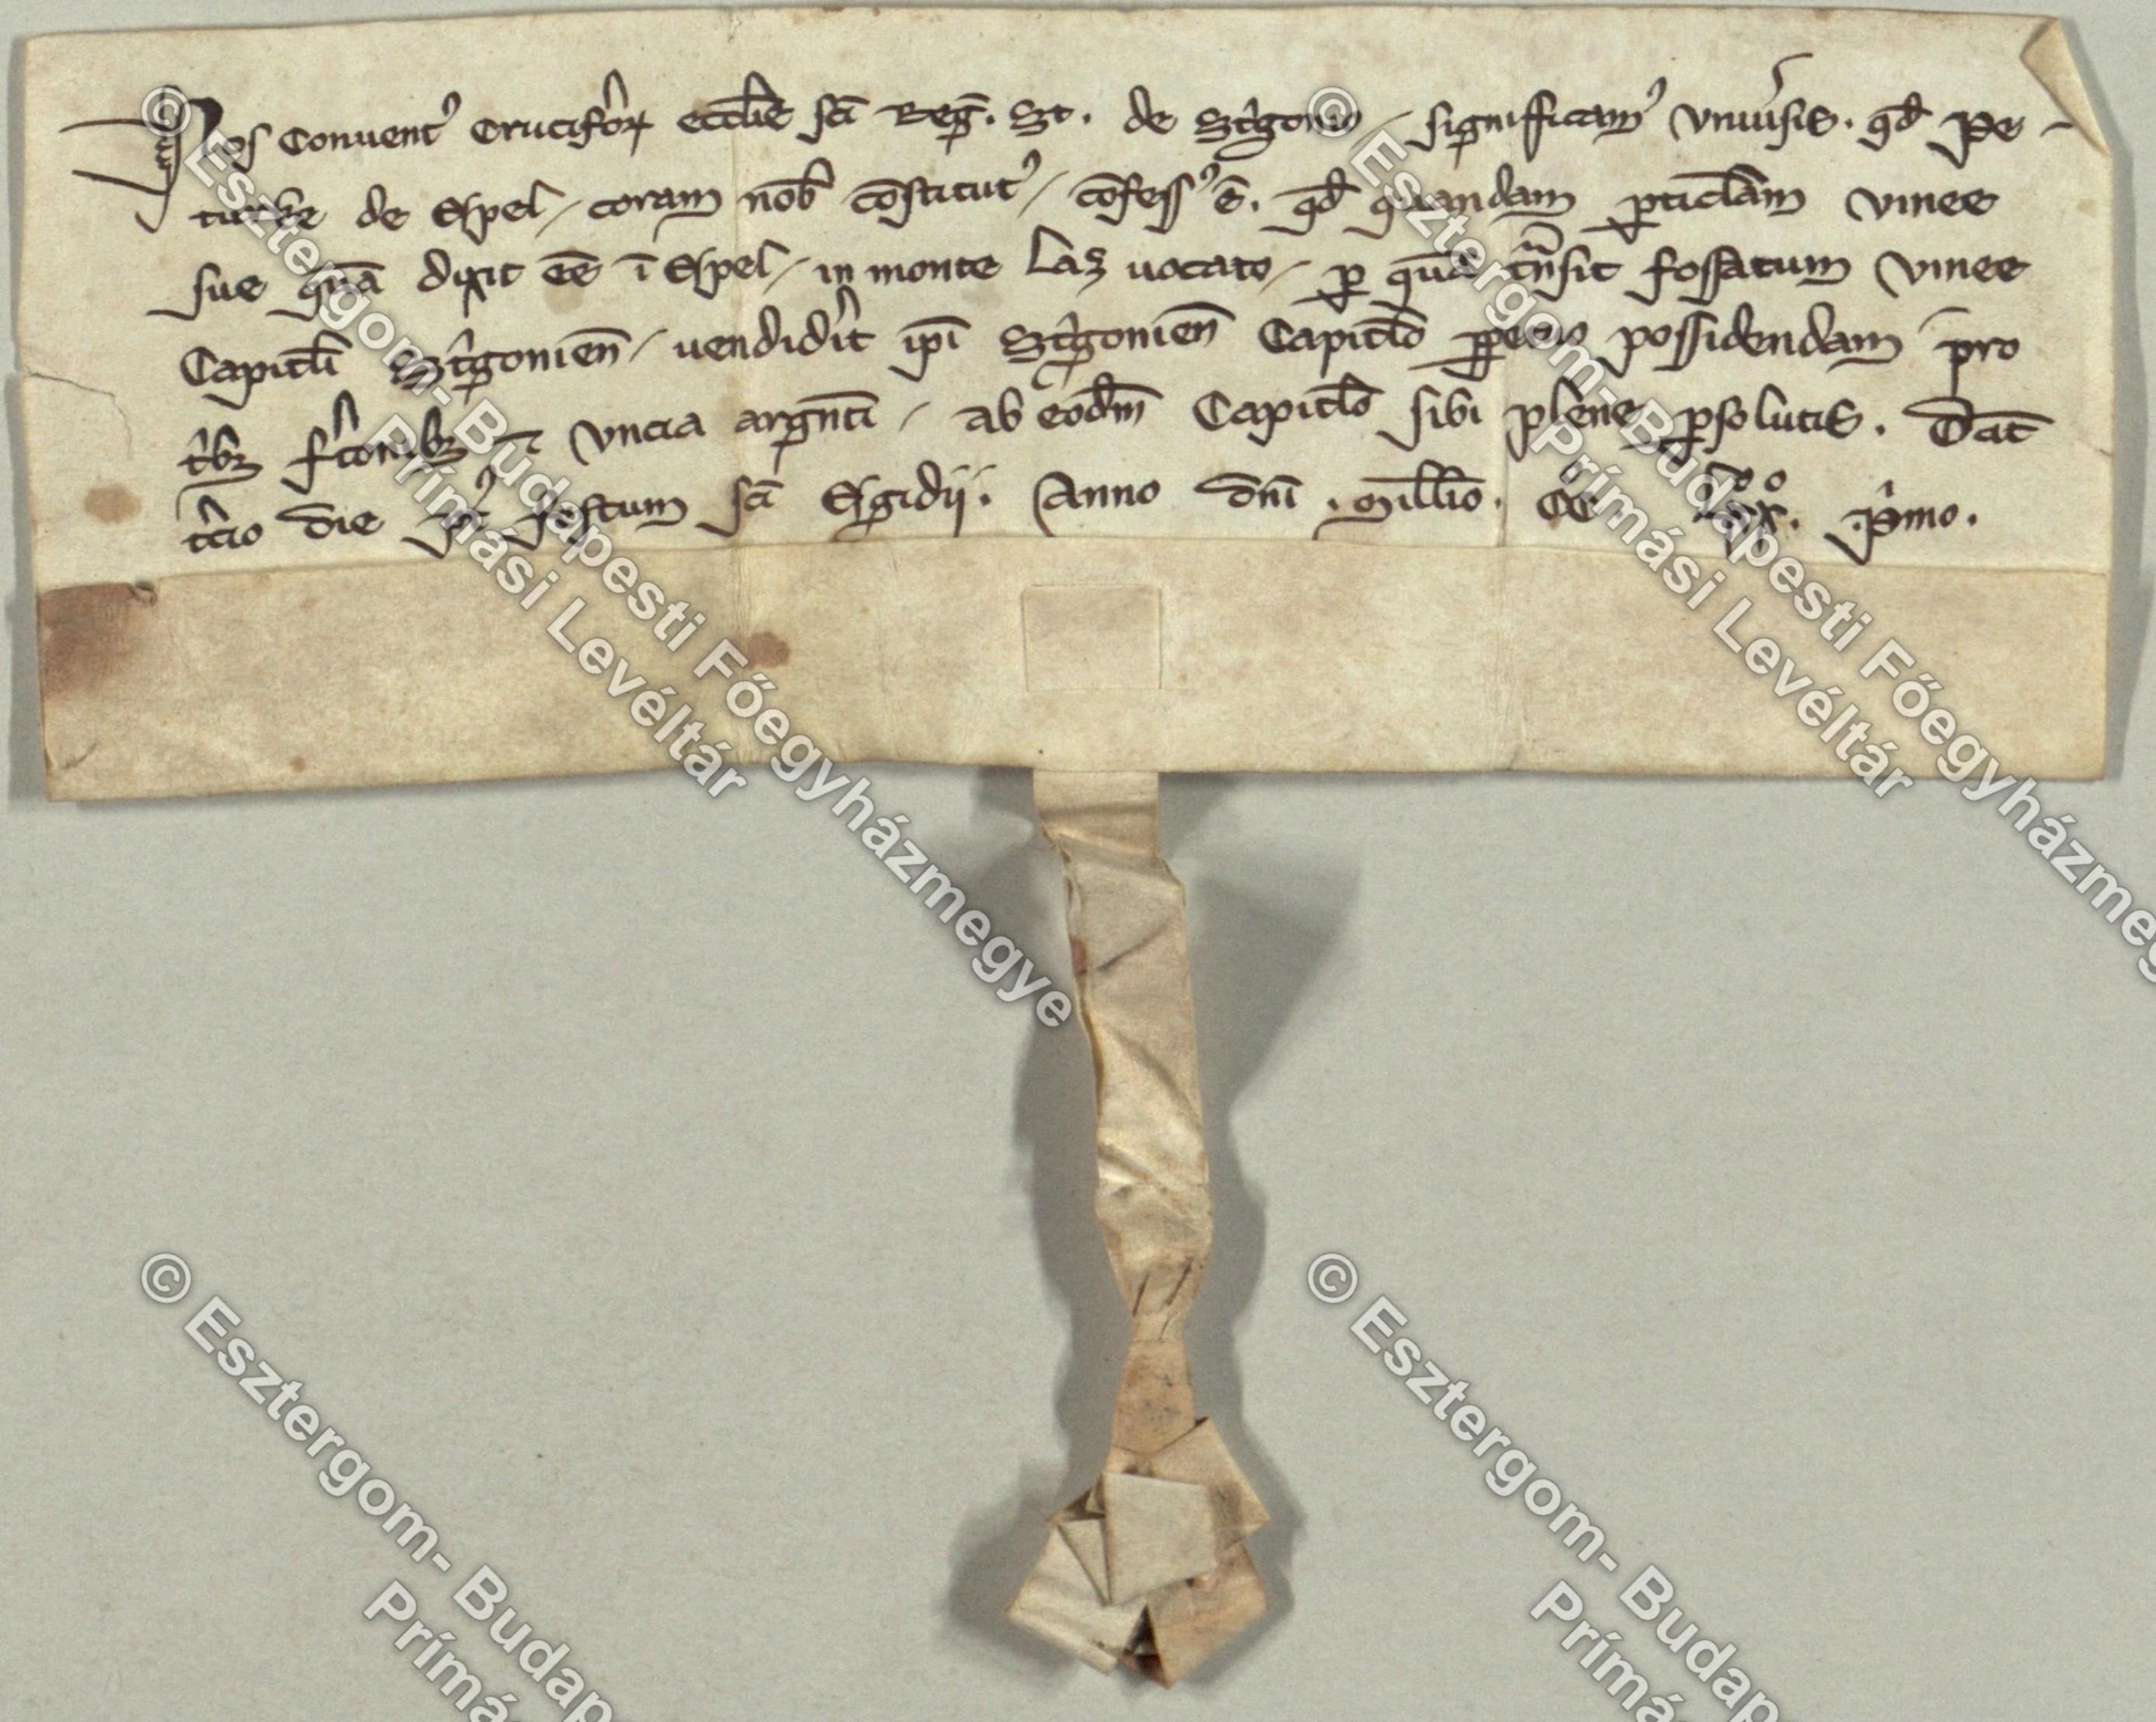 Nos Conuent᾽ Crucifo͛ꝝ eccl̄ie sc̄i Reḡ. St. de St͛gonio / significam᾽ vniu͛sis. qd̄ Pe-
turke de Espel / coram nob̄ cōstitut᾽ / cōfess᾽ ē. qd̄ quandam ꝑticl̄am vinee
sue quā dixit eē ī Espel / in monte Laz uocato / ꝑ quā tn̄sit fossatum vinee
Capitl̄i St͛gonien̄ / uendid͛it ip̄i St͛gonien̄ Capitl̄o ꝑpetuo possidendam pro
t͛bꝫ f͛tonibꝫ ⁊ vncia argn̄ti / ab eodm̄ Capitl̄o sibi plene ꝑsolutis. Dat̄
t͛cio die p᾽ festum sc̄i Egidij. Anno dn̄i . mill̄io. CC. Lxx. p͛mo.
© Esztergom-Budapesti Főegyházmegye
Prímási Levéltár
© Esztergom-Budapesti Főegyházmeg
Prímási Levéltár
© Esztergom- Budap
Prímá
© Esztergom- Budap
Prímá